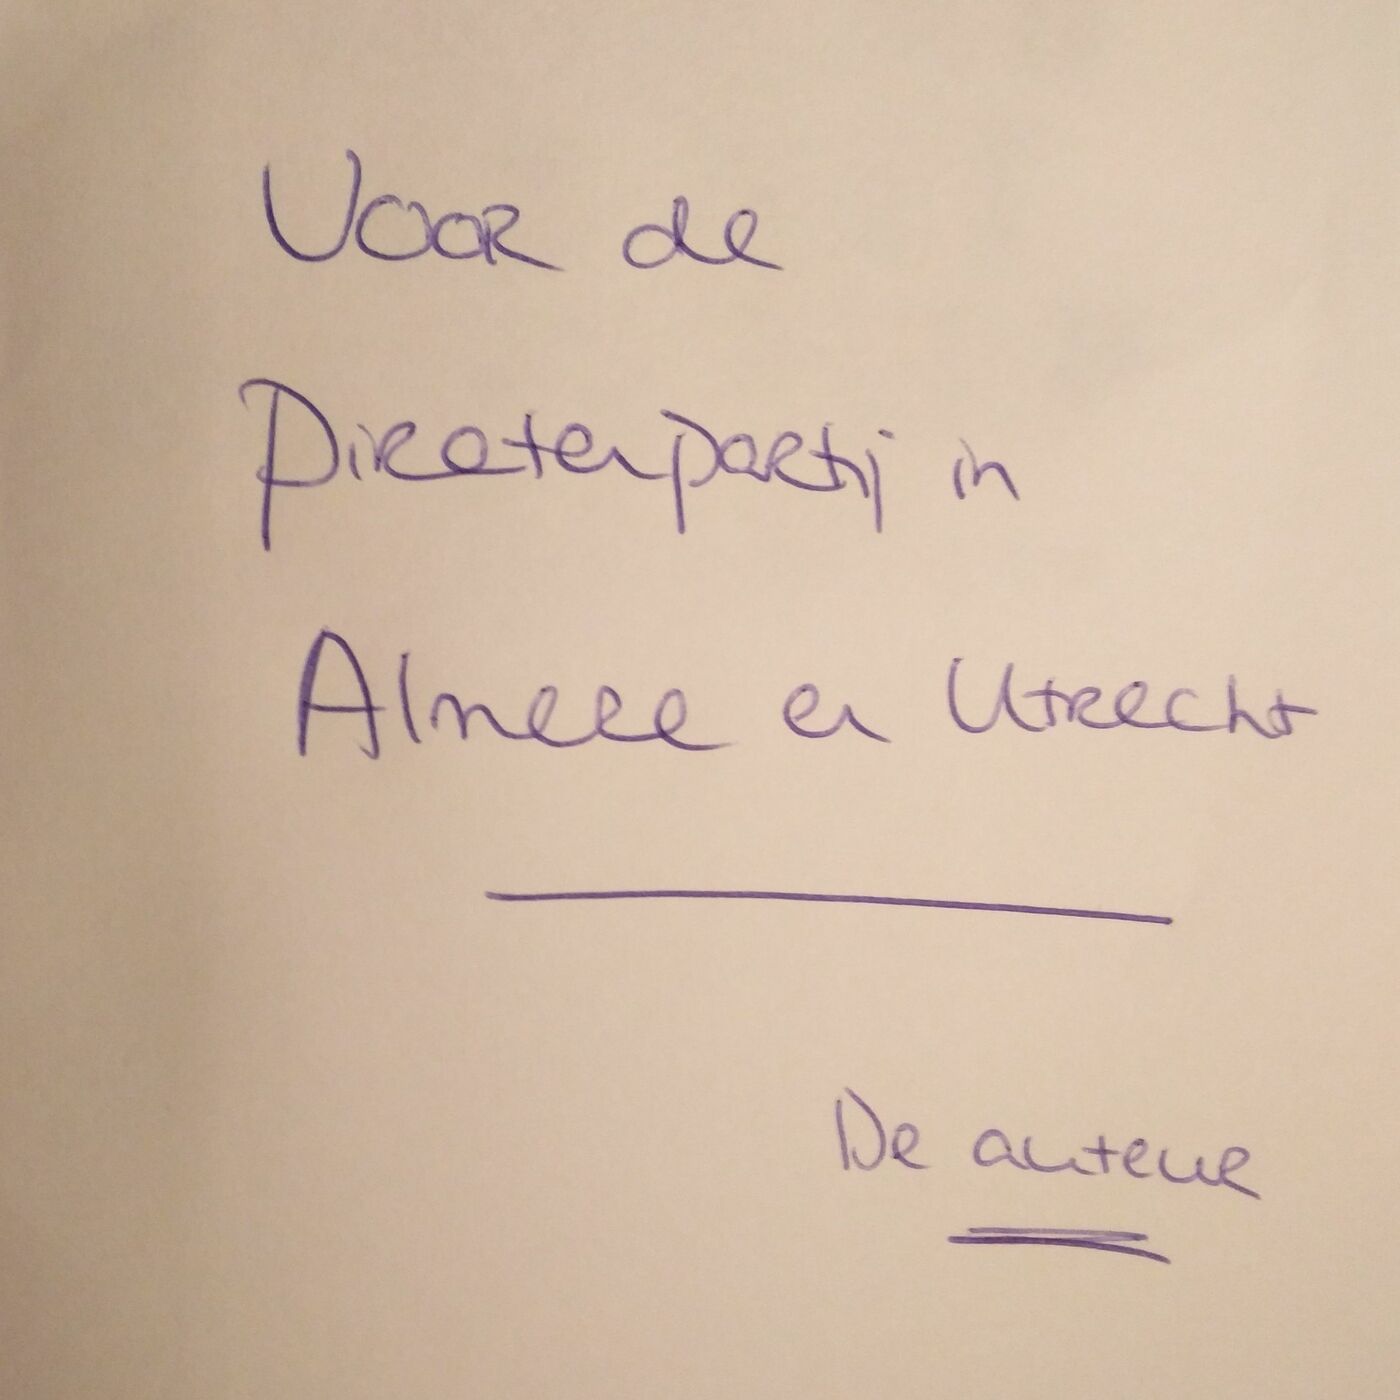 Voor de
Piratenpartij in
Almere en Utrecht
De auteur